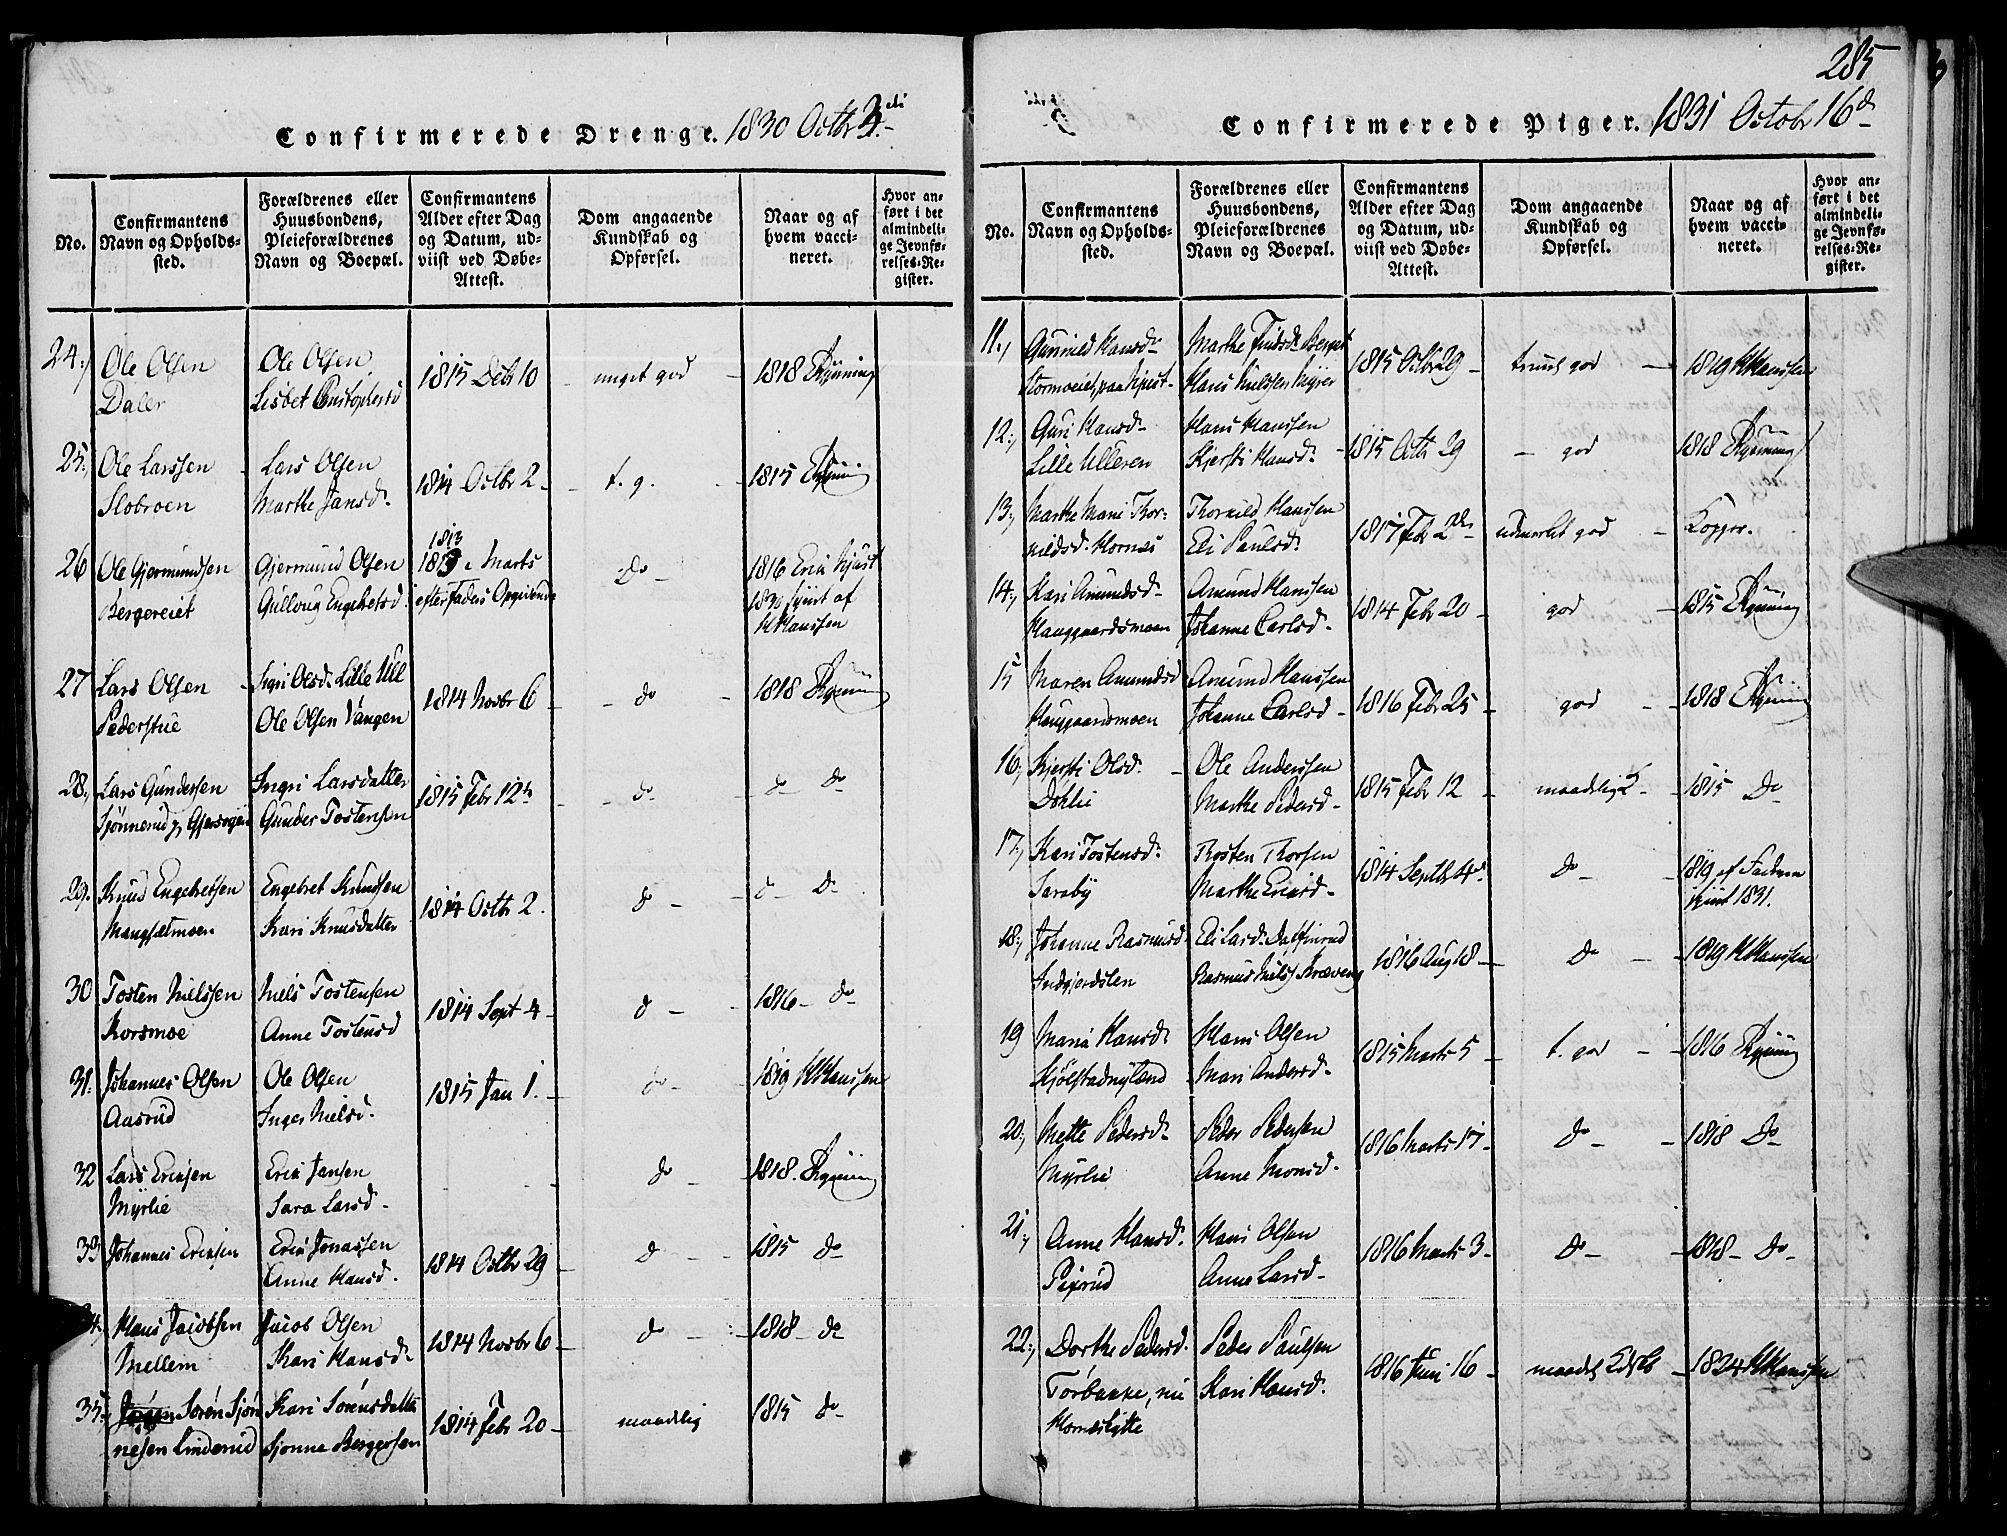 Confirmerede Drenge. 1830 Octbr 3die
No.
Confirmantens Navn og Opholds-sted.
Forældrenes eller Huusbondens, Pleieforældrenes Navn og Boepæl.
Confirmantens Alder efter Dag og Datum, ud-viist ved Døbe-Attest.
Dom angaaende Kundskab og Opførsel.
Naar og af hvem vacci-neret.
Hvor an-ført i det almindeli-ge Jevnfø-relses-Re-gister.
24., Ole Olsen Ole Olsen 1815 Debr 10 - meget god - 1818
Daler Lisbet
25., Ole Larssen Lars Olsen 1814 Octbr 2 - t. g. - 1815
Slobroen Marthe Jansd.
1813
26 Ole Gjermundsen Gjermund Olsen Marts Do - 1816
Bergereiet efter Faders Opgivende
1830 af
HHanssen
27 Lars Olsen Sigri Olsd. Lille Ull 1814 Novbr 6 - do - 1818
Pederstue Ole Olsen Vangen
28., Lars Gundersen Ingri Larsdatter 1815 Febr 12te - do - do
Gunder Tostensen
29. Knud Engebretsen Engebret Knudsen 1814 Octbr 2. do - do
Kari Knudsdatter
30 Tosten Nielssen Niels Tostensen 1814 Sept 4 - do - 1816 - do
Korsmoe Anne Tostensd
31. Johannes Olsen Ole Olsen 1815 Jan 1. - do - 1819 HHanssen
Aasrud Inger Nielsd.
32 Lars Ericsen Eric Jansen - - do - 1818.
Myrlie Sara Larsd.
33 Johannes Ericsen Eric Jonassen 1814 Octbr 29 - do - 1815 do
Anne Hansd.
34. Hans Jacobsen Jacob Olsen 1814 Novbr 6 - do - 1818 - do
Mellem Kari Hansd.
35., Søren Sjøn Kari Sørensdatter 1814 Febr 20 - maadelig 1815 do
nesen Linderud Sjønne Bergersen
285
Confirmerede Piger. 1831 Octobr 16de
No.
Confirmantens Navn og Opholds-sted.
Forældrenes eller Huusbondens, Pleieforældrenes Navn og Boepæl.
Confirmantens Alder efter Dag og Datum, ud-viist ved Døbe-Attest.
Dom angaaende Kundskab og Opførsel.
Naar og af hvem vacci-neret.
Hvor an-ført i det almindeli-ge Jevnfø-relses-Re-gister.
11., Gunild Hansd. Marthe 1815 Octbr 29 - god - 1819 HHanssen
Hans Myrer
12., Guri Hansd. Hans Hanssen 1815 Octbr 29 - god 1818
Lille Ulleren Kjersti Hansd.
13., Marthe Marie Thor- Thorkild Hanssen 1817 Febr 2den udmerket god - Kopper.
kildsd. Hornæs Eli Paulsd.
14., Kari Amundsd. Amund Hanssen 1814 Febr 20 - god - 1815
Haugaardsmoen Johanne Carlsd.
15 Maren Amundsd Amund Hanssen 1816 Febr 25 - god - 1818
Haugaardsmoen Johanne Carlsd.
16., Kjersti Olsd. - Ole Anderssen 1815 Febr 12 - maadelig - 1815 Do
Dohlie Marthe Pedersd.
17., Kari Tostensd. Tosten Thorsen 1814 Septbr 4de Do - 1819 af
Saraby Marthe Ericsd. 1831.
18., Johanne Rasmusd. Eli Larsd. Dalfinrud 1816 Aug 18 - Do - 1819 HHanssen
Rasmus Niels
19 Maria Hansd. Hans Olsen 1815 Marts 5 - t. god - 1816
Kjølstadnyland Mari Andersd.
20., Mette Pedersd. Peder Pedersen 1816 Marts 17 - Do - 1818 Do
Myrlie Anne Monsd.
21., Anne Hansd. Hans Olsen 1816 Marts 3 - Do - 1818 - Do
Pexrud Anne Larsd.
22., Dorthe Pedersd. Peder Paulsen 1816 Juni 16 - 1824 HHanssen
Torbakke, nu Kari Hansd.